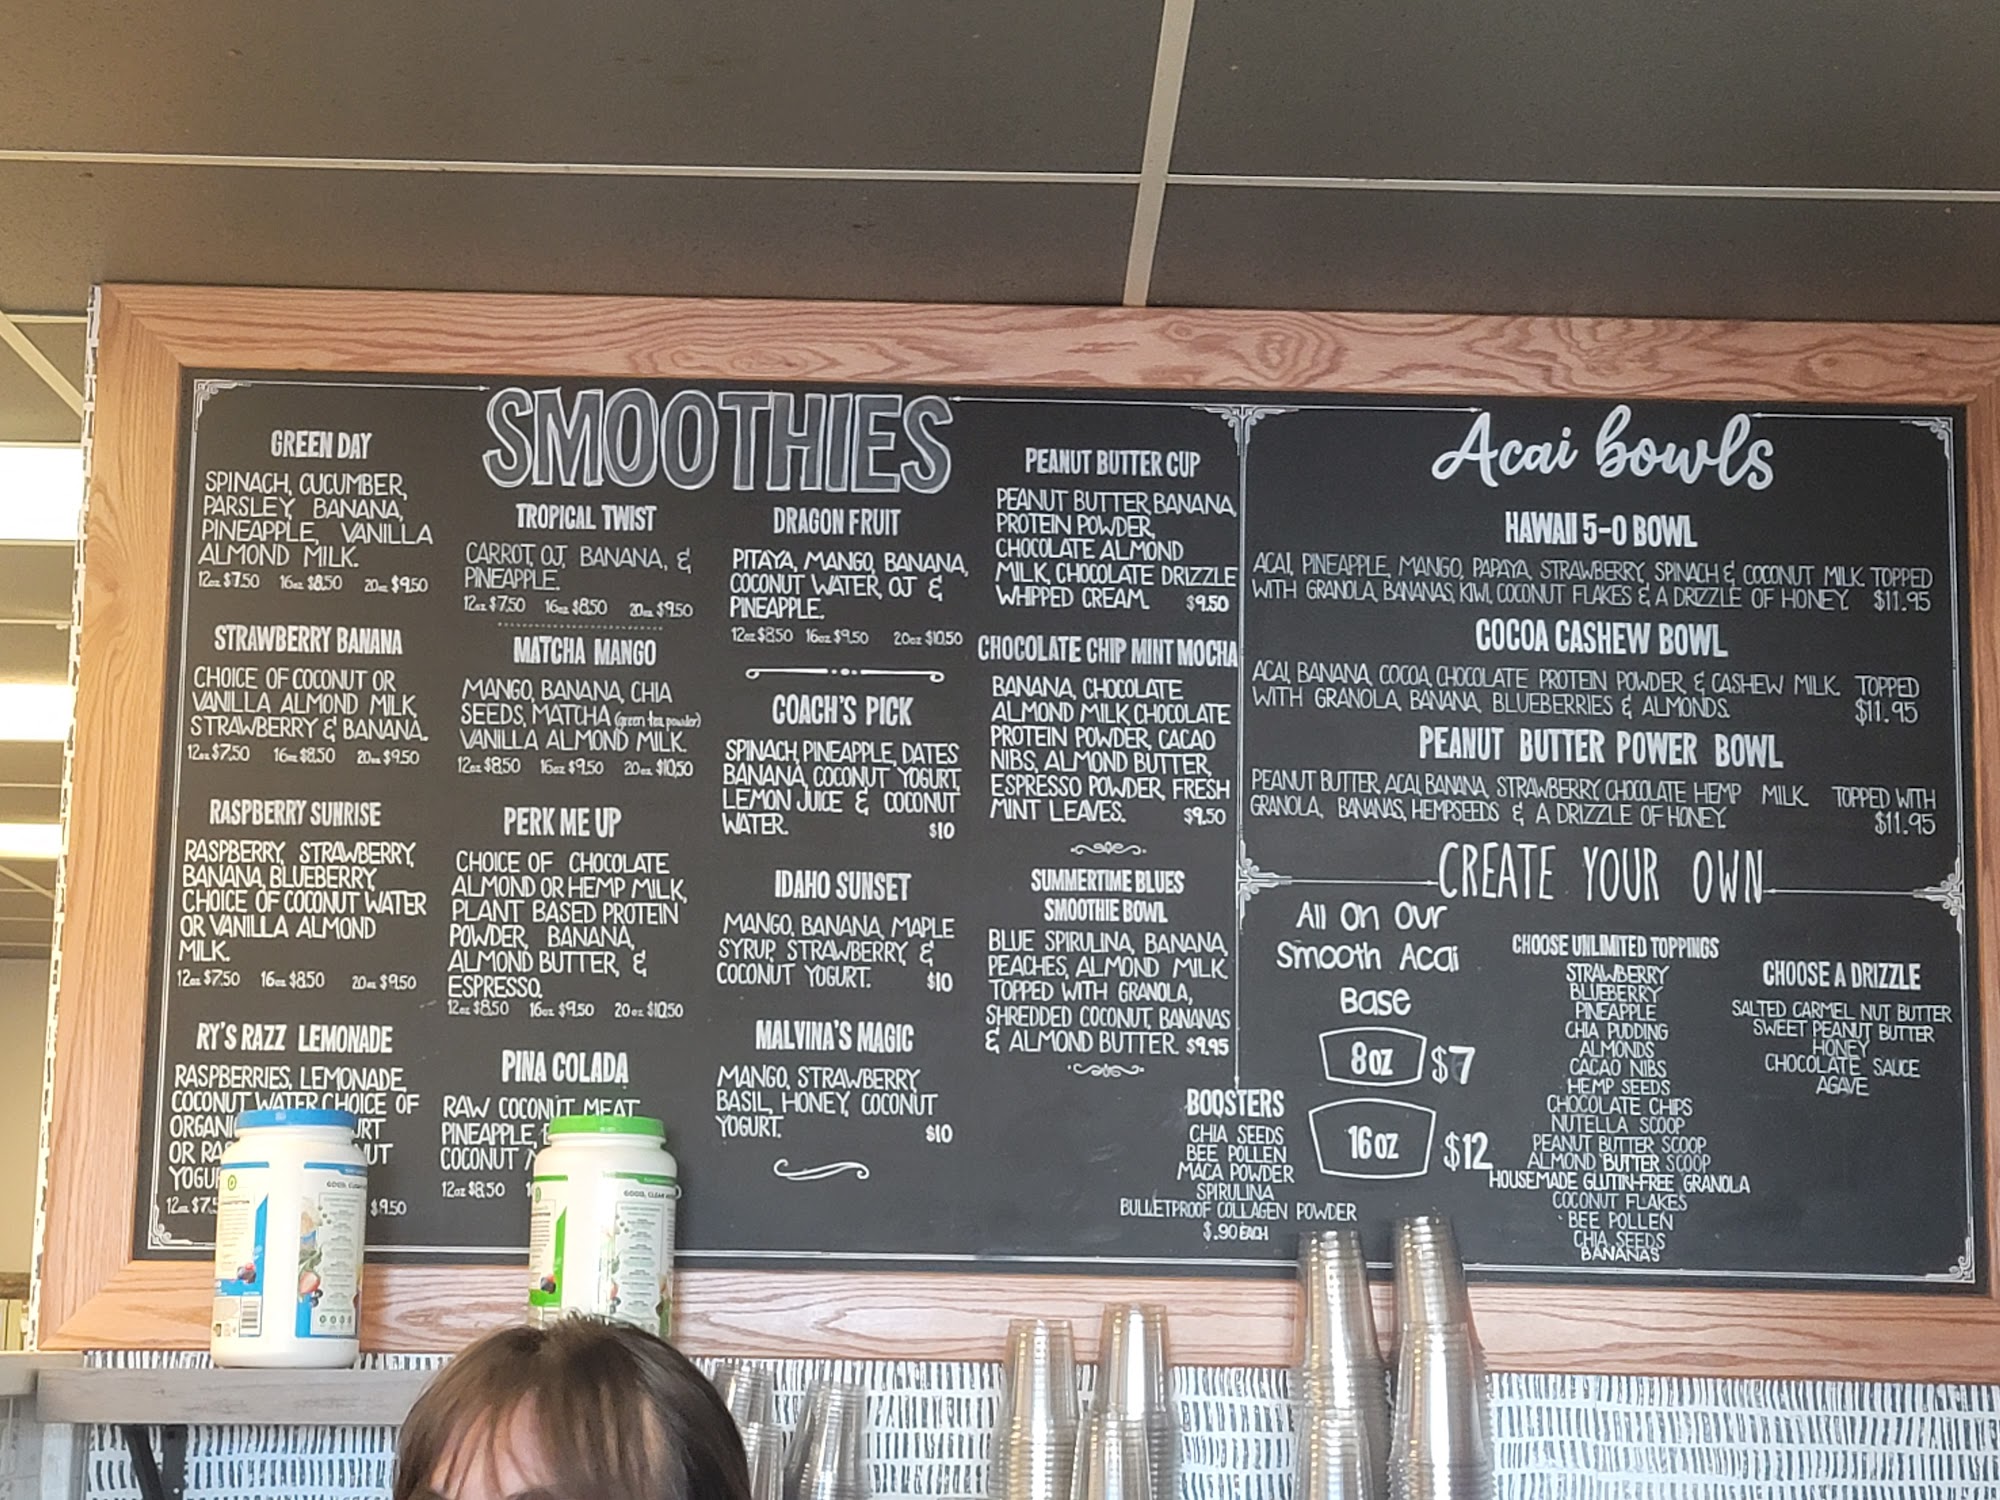 SMOOTHIES
GREEN DAY
SPINACH, CUCUMBER,
PARSLEY, BANANA,
PINEAPPLE, VANILLA
ALMOND MILK.
12oz $7.50 16oz $8.50 20oz $9.50
STRAWBERRY BANANA
CHOICE OF COCONUT OR
VANILLA ALMOND MILK,
STRAWBERRY & BANANA.
12oz $7.50 16oz $8.50 20oz $9.50
RASPBERRY SUNRISE
RASPBERRY, STRAWBERRY,
BANANA, BLUEBERRY,
CHOICE OF COCONUT WATER
OR VANILLA ALMOND
MILK.
12oz $7.50 16oz $8.50 20oz $9.50
RY'S RAZZ LEMONADE
RASPBERRIES, LEMONADE,
COCONUT WATER, CHOICE OF
OR
12oz $9.50
TROPICAL TWIST
CARROT, OJ, BANANA, &
PINEAPPLE.
12oz $7.50 16oz $8.50 20oz $9.50
MATCHA MANGO
MANGO, BANANA, CHIA
SEEDS, MATCHA (green tea powder)
VANILLA ALMOND MILK.
12oz $8.50 16oz $9.50 20oz $10.50
PERK ME UP
CHOICE OF CHOCOLATE
ALMOND OR HEMP MILK,
PLANT BASED PROTEIN
POWDER, BANANA,
ALMOND BUTTER, &
ESPRESSO.
12oz $8.50 16oz $9.50 20oz $10.50
PINA COLADA
RAW COCONUT MEAT,
PINEAPPLE,
COCONUT
12oz $8.50
DRAGON FRUIT
PITAYA, MANGO, BANANA,
COCONUT WATER, OJ &
PINEAPPLE.
12oz $8.50 16oz $9.50 20oz $10.50
COACH'S PICK
SPINACH, PINEAPPLE, DATES
BANANA, COCONUT YOGURT,
LEMON JUICE & COCONUT
WATER. $10
IDAHO SUNSET
MANGO, BANANA, MAPLE
SYRUP, STRAWBERRY, &
COCONUT YOGURT. $10
MALVINA'S MAGIC
MANGO, STRAWBERRY
BASIL, HONEY, COCONUT
YOGURT. $10
PEANUT BUTTER CUP
PEANUT BUTTER, BANANA,
PROTEIN POWDER,
CHOCOLATE ALMOND
MILK, CHOCOLATE DRIZZLE
WHIPPED CREAM. $9.50
CHOCOLATE CHIP MINT MOCHA
BANANA, CHOCOLATE
ALMOND MILK, CHOCOLATE
PROTEIN POWDER, CACAO
NIBS, ALMOND BUTTER,
ESPRESSO POWDER, FRESH
MINT LEAVES. $9.50
SUMMERTIME BLUES
SMOOTHIE BOWL
BLUE SPIRULINA, BANANA,
PEACHES, ALMOND MILK.
TOPPED WITH GRANOLA,
SHREDDED COCONUT, BANANAS
& ALMOND BUTTER. $9.95
BOOSTERS
CHIA SEEDS
BEE POLLEN
MACA POWDER
SPIRULINA
BULLETPROOF COLLAGEN POWDER
$.90 EACH
Acai bowls
HAWAII 5-0 BOWL
ACAI, PINEAPPLE, MANGO, PAPAYA, STRAWBERRY, SPINACH & COCONUT MILK. TOPPED
WITH GRANOLA, BANANAS, KIWI, COCONUT FLAKES & A DRIZZLE OF HONEY. $11.95
COCOA CASHEW BOWL
ACAI, BANANA, COCOA, CHOCOLATE PROTEIN POWDER, & CASHEW MILK. TOPPED
WITH GRANOLA, BANANA, BLUEBERRIES & ALMONDS. $11.95
PEANUT BUTTER POWER BOWL
PEANUT BUTTER, ACAI, BANANA, STRAWBERRY, CHOCOLATE HEMP MILK. TOPPED WITH
GRANOLA, BANANAS, HEMPSEEDS & A DRIZZLE OF HONEY. $11.95
CREATE YOUR OWN
All On Our
Smooth Acai
Base
8oz $7
16oz $12
CHOOSE UNLIMITED TOPPINGS
STRAWBERRY
BLUEBERRY
PINEAPPLE
CHIA PUDDING
ALMONDS
CACAO NIBS
HEMP SEEDS
CHOCOLATE CHIPS
NUTELLA SCOOP
PEANUT BUTTER SCOOP
ALMOND BUTTER SCOOP
HOUSEMADE GLUTIN-FREE GRANOLA
COCONUT FLAKES
BEE POLLEN
CHIA SEEDS
BANANAS
CHOOSE A DRIZZLE
SALTED CARMEL NUT BUTTER
SWEET PEANUT BUTTER
HONEY
CHOCOLATE SAUCE
AGAVE